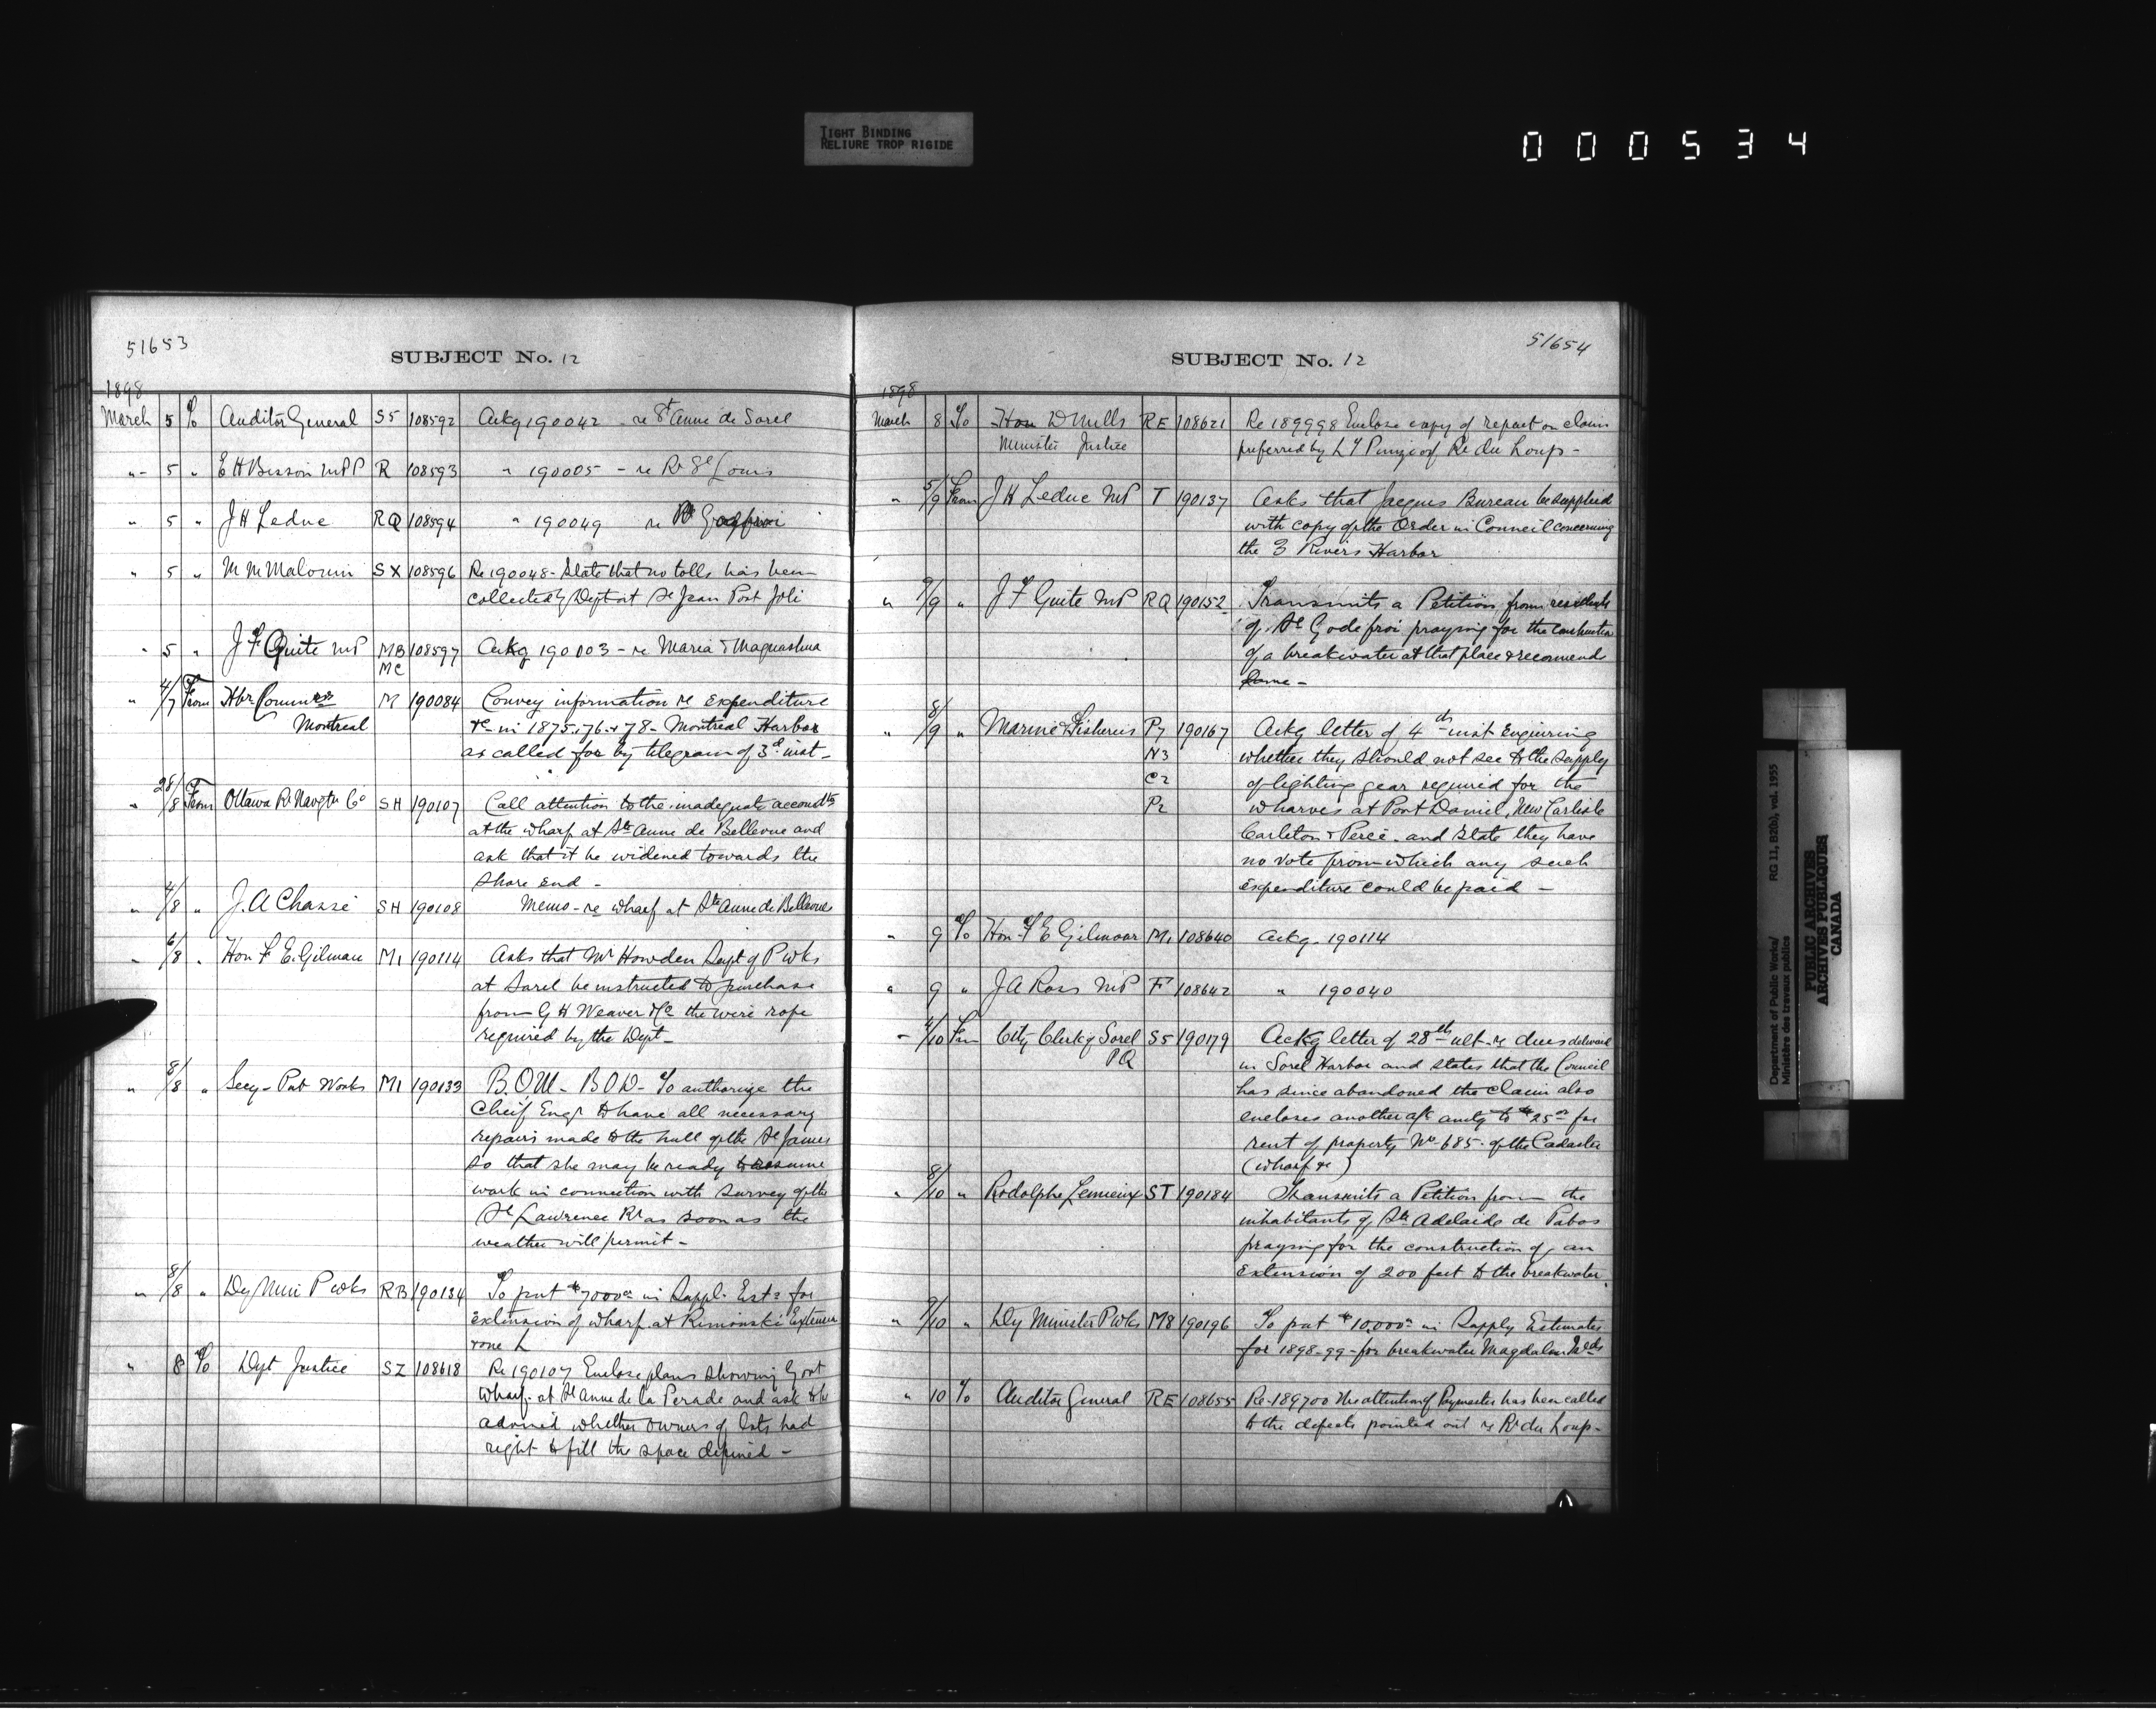 TIGHT BINDING
RELIURE TROP RIGIDE
000534
51653
SUBJECT No. 12
1898
March 5 To Auditor General S5 108592 Ackg 190042 - re St Anne de Sorel
" 5 " E H Bisson MPP R 108593 " 190005 - re Rr St Louis
" 5 " J H Leduc RQ 108594 " 190049 re
" 5 " M M Malouin SX 108596 Re 190048 - State that no tolls has been
collected by Dept at St Jean Port Joli
" 5 " J F Guite MP MB 108597 Ackg 190003 - re Maria & Maguashua
MC
" 4/7 From Hbr Commrs M 190084 Convey information re expenditure
Montreal &c in 1875-76 & 78 - Montreal Harbor
as called for by telegram of 3d inst -
" 28/8 From Ottawa Rr Navgtn Co SH 190107 Call attention to the inadequate
at the wharf at Ste Anne de Bellevue and
ask that it be widened towards the
shore end -
" 4/8 " J. A Chassé SH 190108 Memo - re wharf at Ste Anne de Bellevue
" 6/8 " Hon F E. Gilman M1 190114 Asks that Mr Howden Supt of P wks
at Sorel be instructed to purchase
from G H Weaver & Co the wire rope
required by the Dept -
" 8/8 " Secy - Pub Works M1 190133 B. O. M - B O D - To authorize the
Cheif Engr to have all necessary
repairs made to the hull of the St James
so that she may be ready to resume
work in connection with survey of the
St Lawrence Rr as soon as the
weather will permit -
" 8/8 " Dy Min P wks RB 190134 To put $7000 00 in Suppl. Ests for
extension of wharf at Rimouski

" 8 To Dept Justice SZ 108618 Re 190107 Enclose plans showing Govt
wharf at St Anne de la Perade and ask to be
advised whether owners of lots had
right to fill the space defined -
51654
SUBJECT No. 12
1898
March 8 To Hon D Mills RE 108621 Re 189998 Enclose copy of report on claim
Minister Justice preferred by of Rr du Loup -
" 5/9 From J H Leduc MP T 190137 Asks that Jacques Bureau be supplied
with copy of the Order in Council concerning
the 3 Rivers Harbor
" 9/9 " J F Guite MP RQ 190152 Transmits a Petition from residents
of St Godefroi praying for the construction
of a breakwater at that place & recommends
same -
" 8/9 " Marine & Fisheries P7 190167 Ackg letter of 4th inst Enquiring
N3 whether they should not see to the supply
C2 of lighting gear required for the
P2 wharves at Port Daniel, New Carlisle
Carleton & Percé - and state they have
no vote from which any such
expenditure could be paid -
" 9 To Hon F E Gilmour M1 108640 Ackg - 190114
" 9 " J A Ross MP F 108642 " 190040
" 4/10 From City Clerk of Sorel S5 190179 Ackg letter of 28th ult - re dues
PQ in Sorel Harbor and states that the Council
has since abandoned the claim also
encloses another a/c amtg to $25 00 for
rent of property No 685 - of the Cadaster
(wharf &c)
" 8/10 " Rodolphe Lemieux ST 190184 Transmits a Petition from the
inhabitants of Ste Adelaide de Pabos
praying for the construction of, an
extension of 200 feet to the breakwater.
" 9/10 " Dy Minister P Wks M8 190196 To put $10,000 in Supply Estimates
for 1898-99 - for breakwater Magdalen Islds
" 10 To Auditor General RE 108655 Re - 189700 The attention of Paymaster has been called
to the defects pointed out re Rr du Loup -
Department of Public Works/ RG 11, B2(b), vol. 1955
Ministère des travaux publics
PUBLIC ARCHIVES
ARCHIVES PUBLIQUES
CANADA